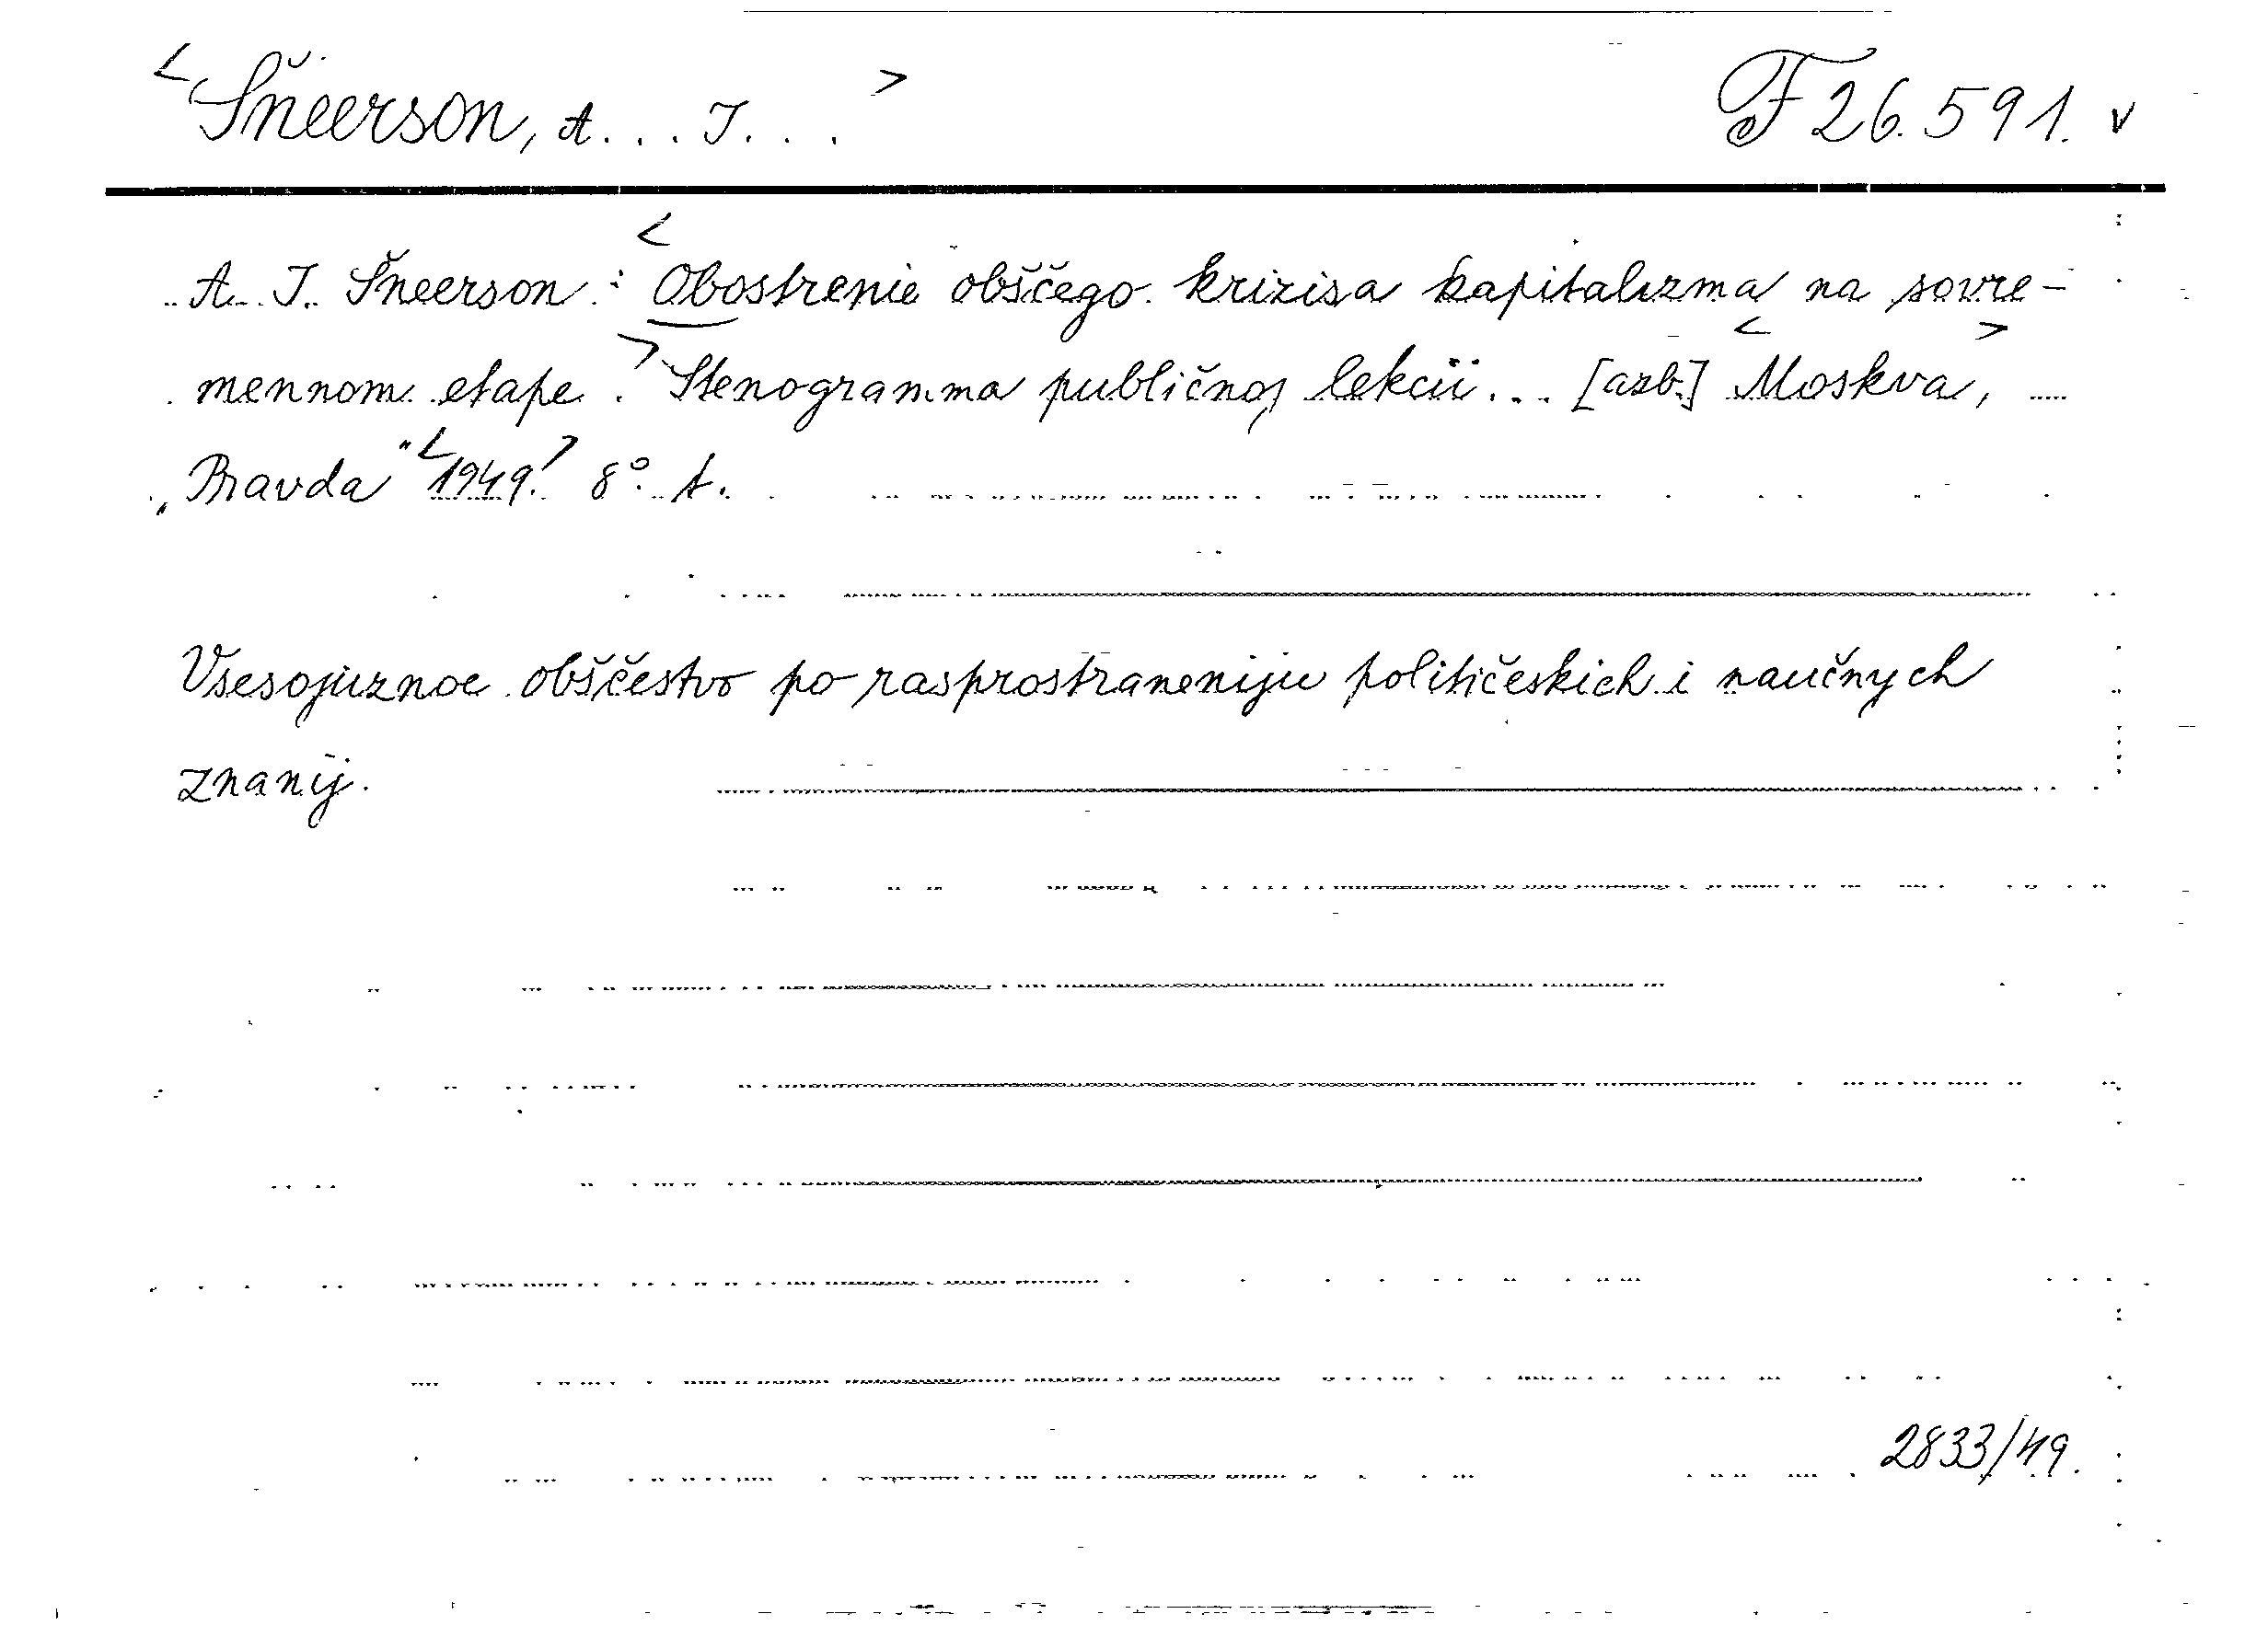 <Šneerson, A... I...> F 26.591. v
A. I. Šneerson: <Obostrenie obščego krizisa kapitalizma na sovre-
mennom etape.> Stenogramma publičnoj lekcii... [azb.] <Moskva>,
„Pravda" <1949.> 8° t.
Vsesojuznoe obščestvo po rasprostraneniju političeskich i naučnych
znanij.
2833/49.